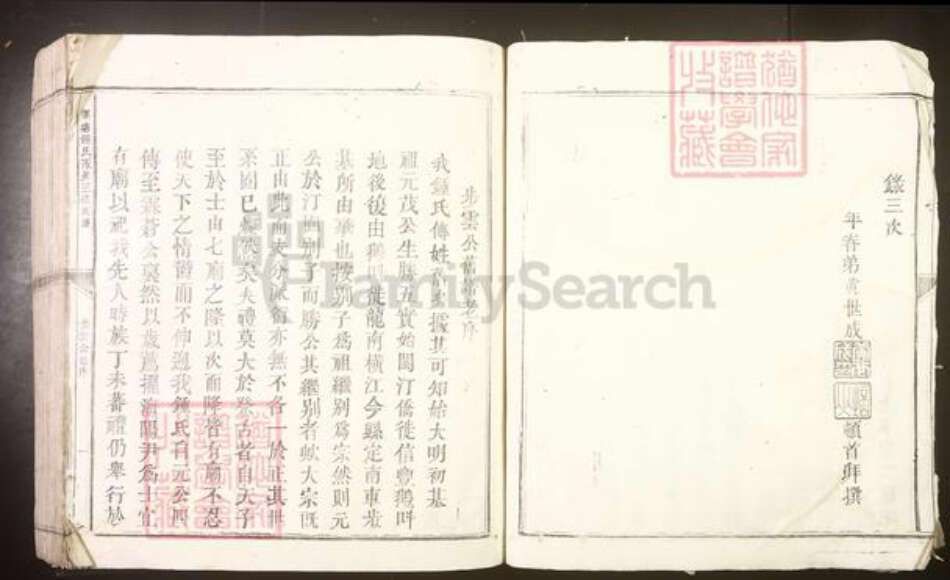 錄三次
年春弟黃世成
頓首拜撰
猶他家譜學會收藏
步雲公舊
序
我鍾氏傳姓
據其可知始大明初基
祖元茂公生勝五實始閩汀僑徙信豐鵝叫
地後復由鵝
徙龍南橫江今縣定南東
其所由
也按別子爲祖繼別爲宗然則元
公於汀
別子而勝公其繼別者歟大宗既
正由此而
亦無不各一於正其世
系固已
矣夫禮莫大於
古者自天子
至於士由七廟之隆以次而降皆有廟不忍
使天下之情
而不伸
我鍾氏自元公
傳至霖蒼公
然以
尹爲士宦
有廟以祀我先人時族丁未蕃禮仍舉行於
FamilySearch